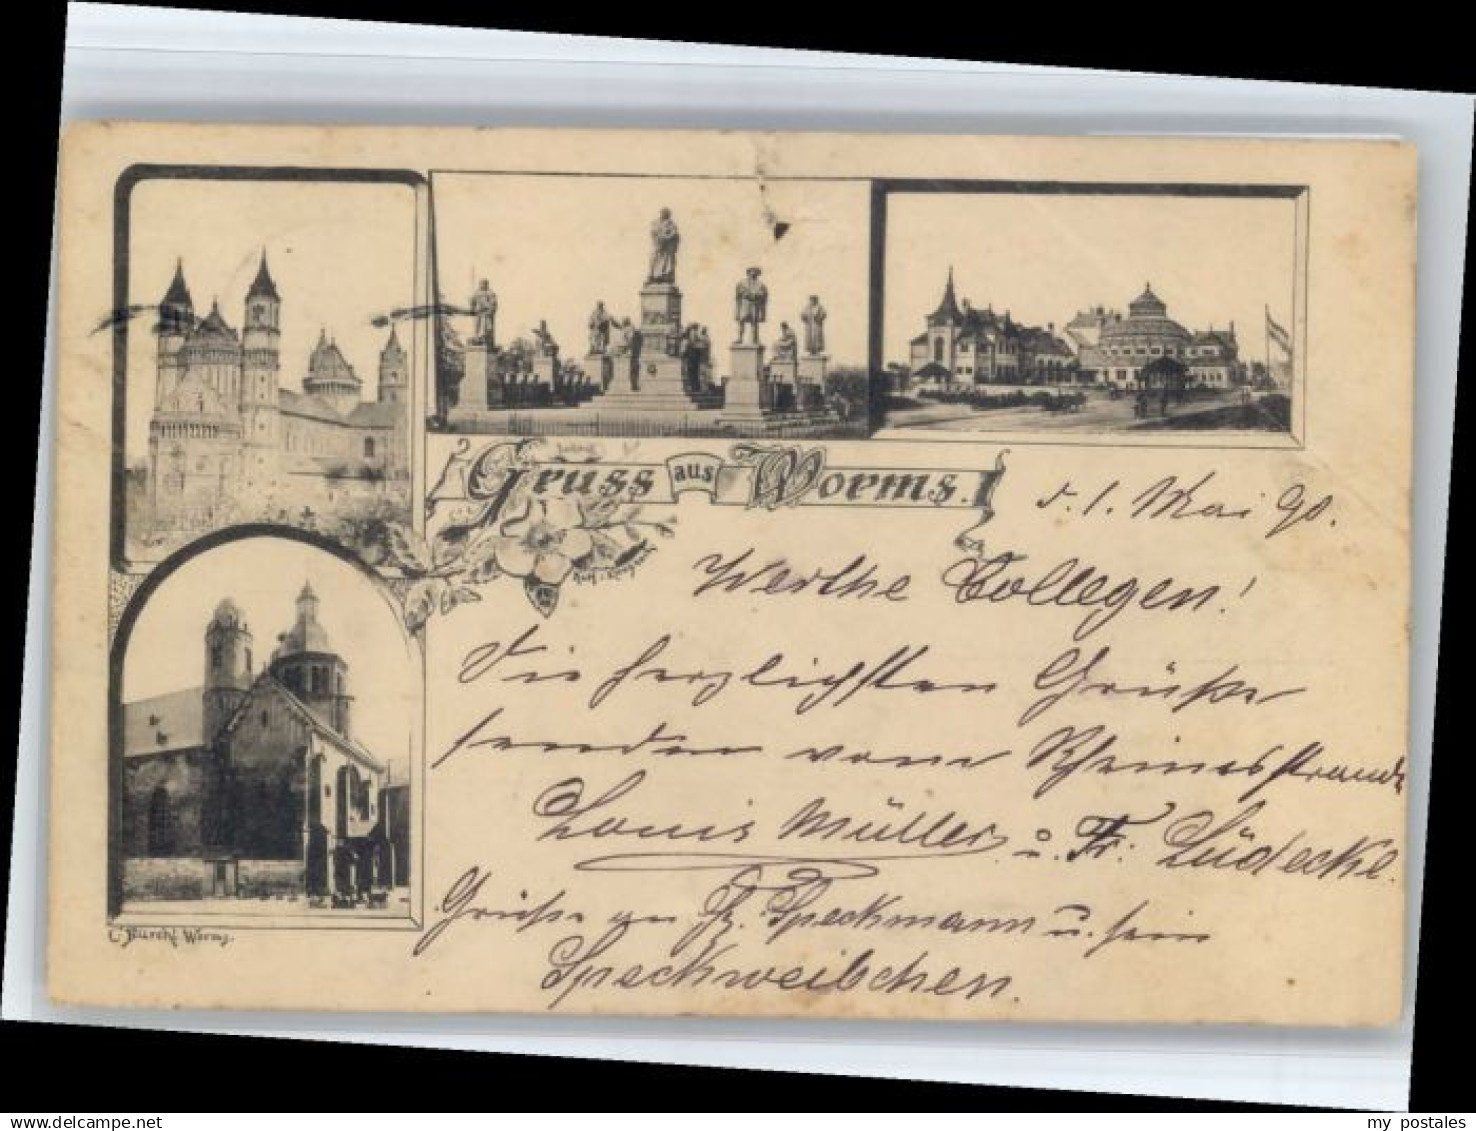 Gruss aus Worms.
d. 1. Mai 90.
Werthe Collegen!
Die herzlichsten Grüße
senden vom Rheinesstrande
Louis Müller u. Fr. Lüdecke.
Grüße an Fr. Speckmann u. sein
Speckweibchen.
C. Burchl Worms.
my postales